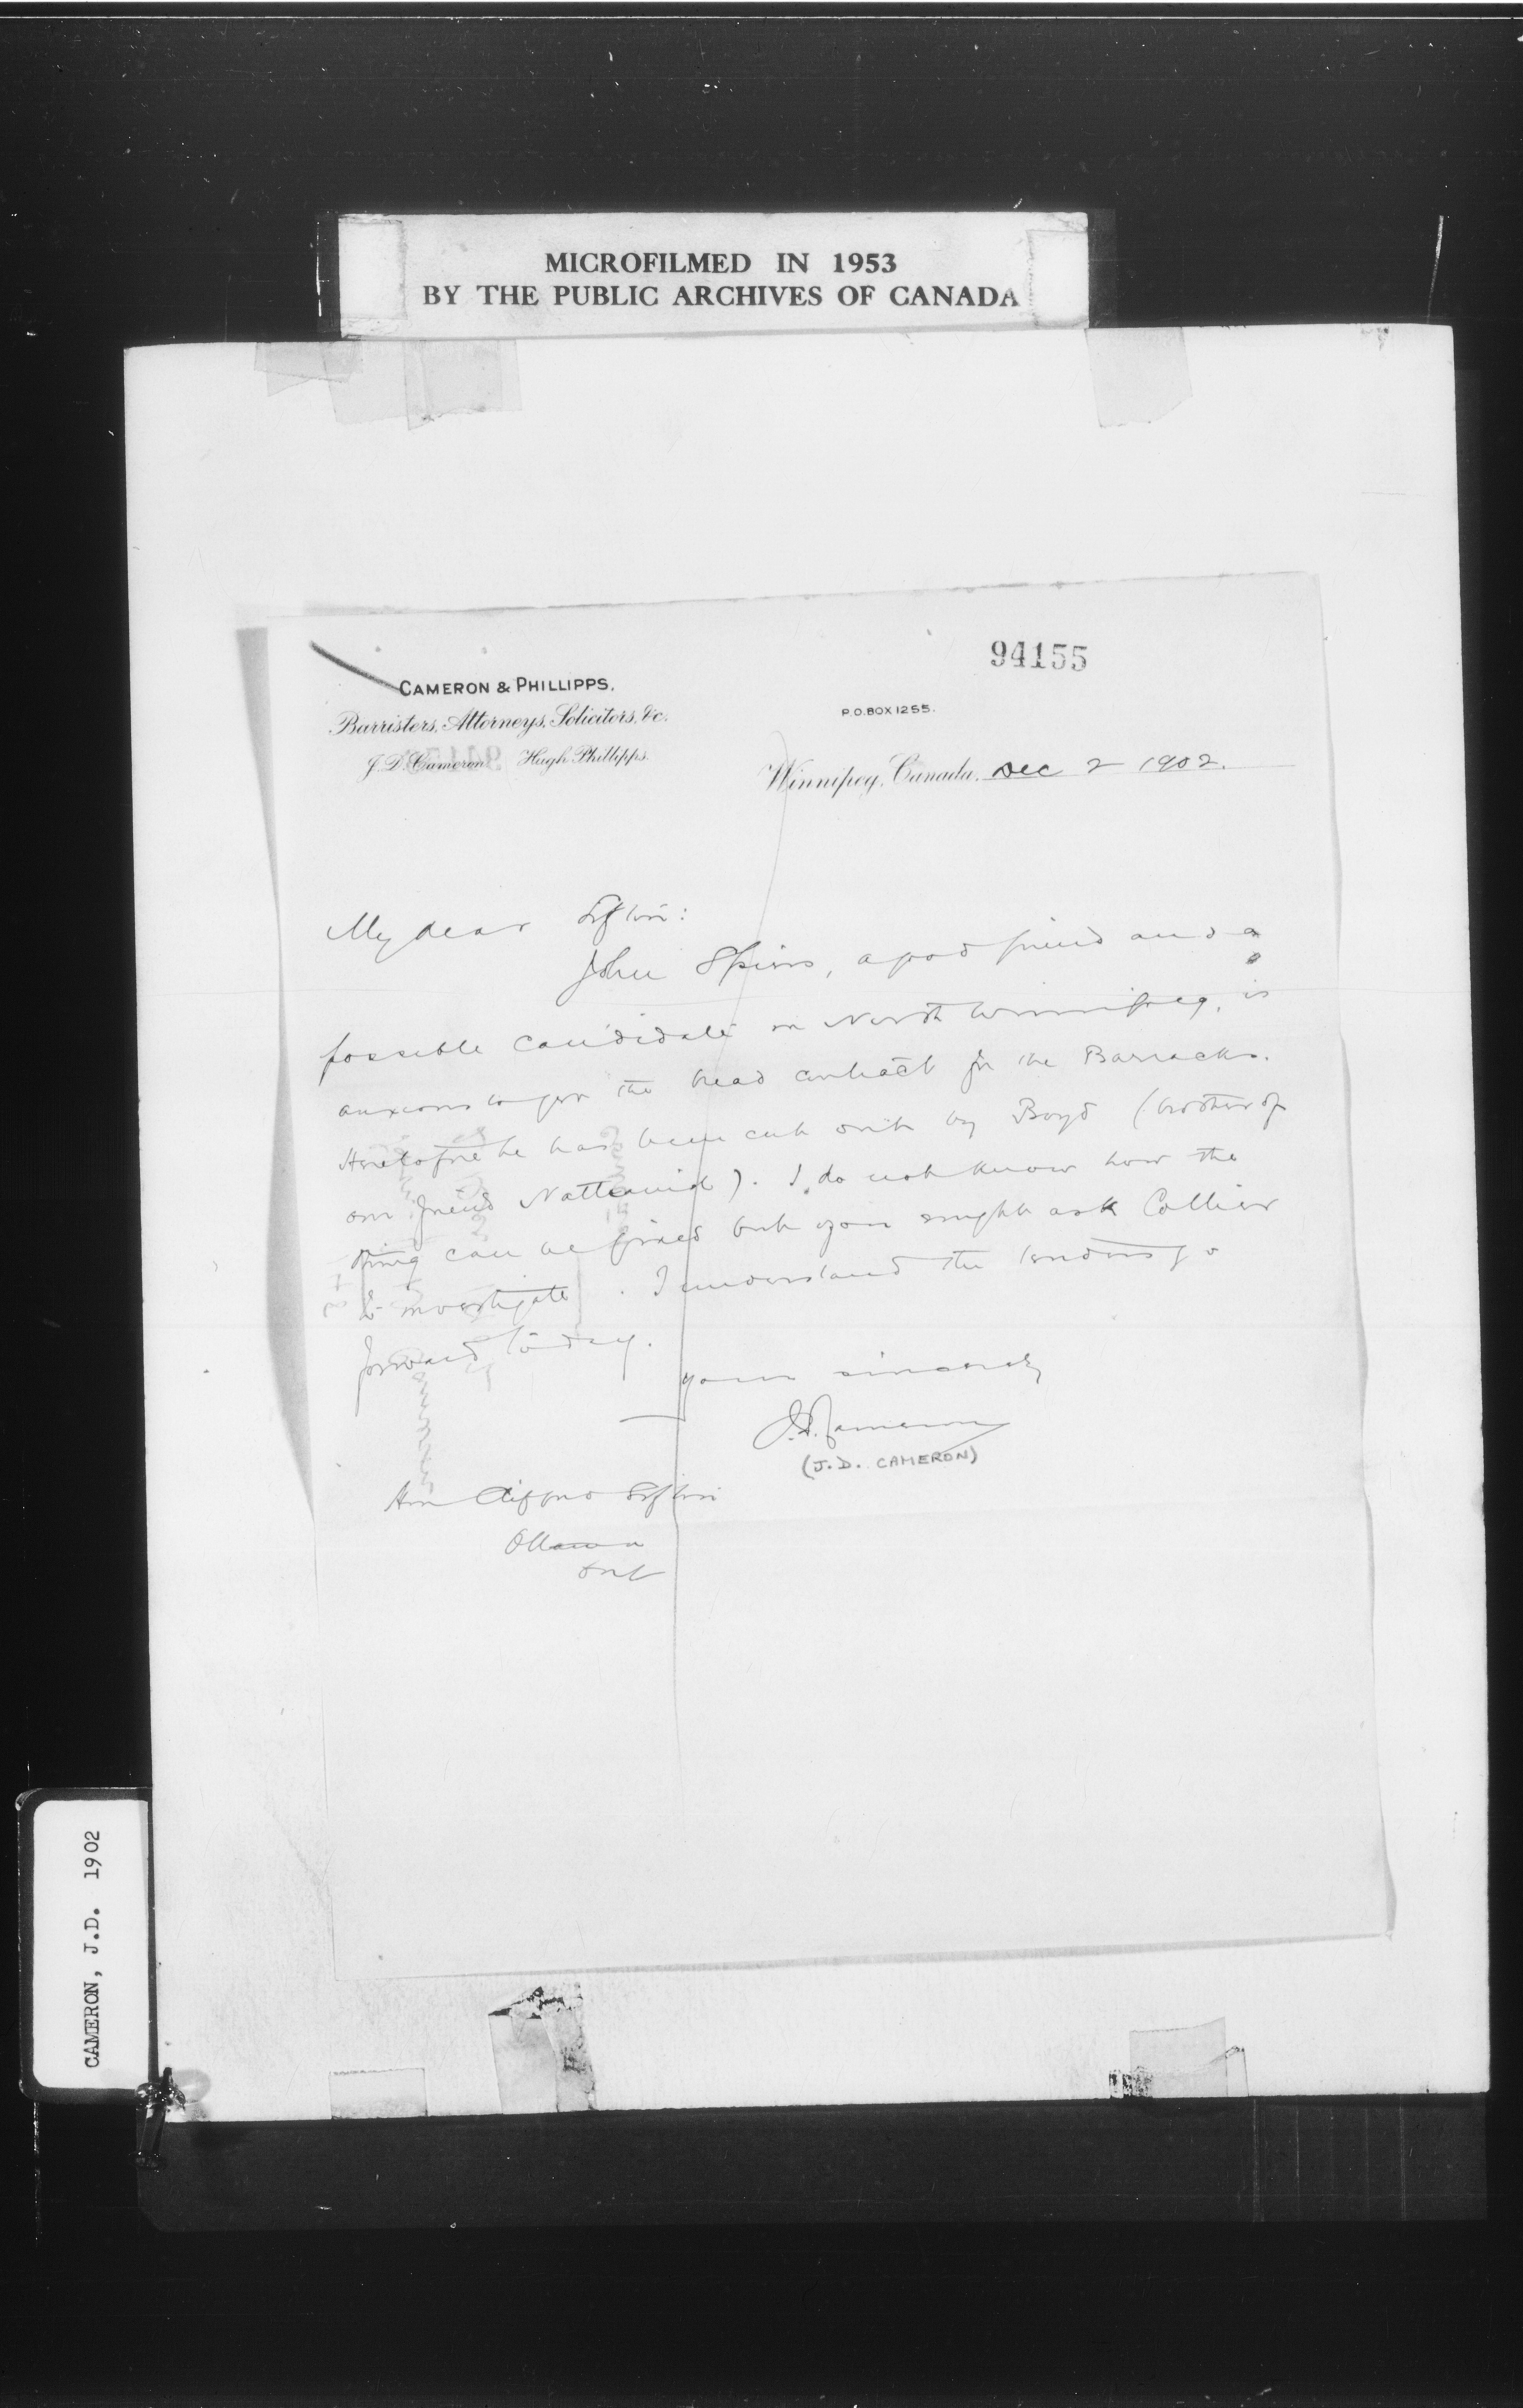 MICROFILMED IN 1953
BY THE PUBLIC ARCHIVES OF CANADA
94155
CAMERON & PHILLIPPS.
Barristers, Attorneys, Solicitors, &c.
J. D. Cameron Hugh Phillipps.
P.O. BOX 1255.
Winnipeg, Canada, Dec 2 1902.
My dear Sifton:
John Spiers, a good friend and a
possible candidate in North Winnipeg, is
anxious to get the bread contract for the Barracks.
Heretofore he has been cut out by Boyd (brother of
our friend Nathaniel). I do not know how the
thing can be fixed but you might ask Collier
to investigate. I understand the tenders go
forward to-day.
Yours sincerely
J.D. Cameron
(J.D. CAMERON)
Hon Clifford Sifton
Ottawa
Ont
CAMERON, J.D. 1902